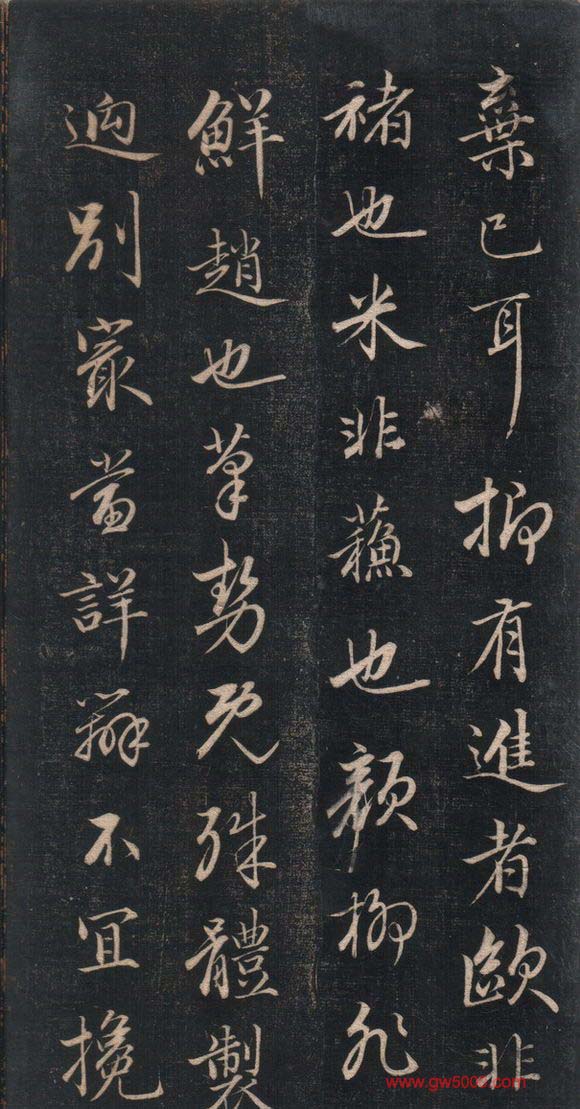 棄已耳抑有進者歐非
褚也米非蘇也顏柳非
鮮趙也筆勢既殊體製
迥別最當詳辨不宜攙
www.gw5000.com